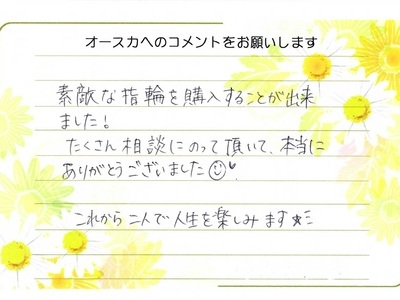 オースカへのコメントをお願いします
素敵な指輪を購入することが出来
ました!
たくさん相談にのって頂いて、本当に
ありがとうございました☺♥
これから二人で人生を楽しみます★ミ